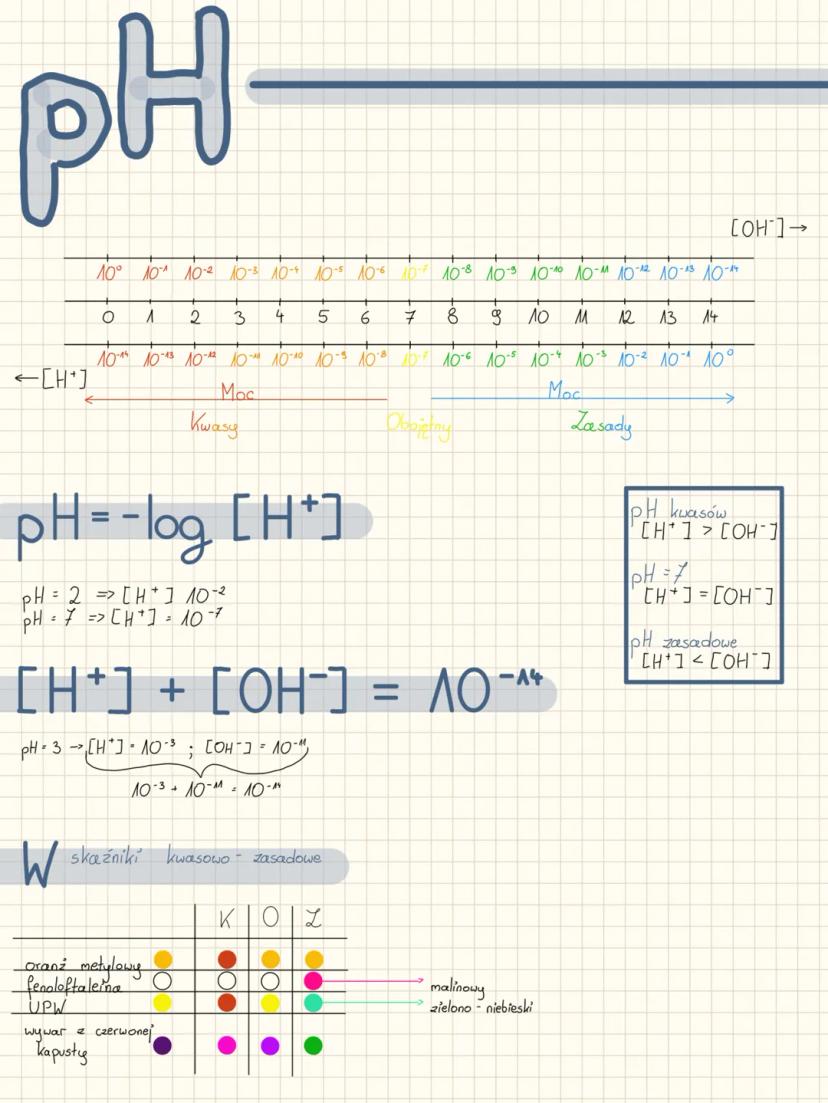 pH
[OH⁻]→
10⁰ 10⁻¹ 10⁻² 10⁻³ 10⁻⁴ 10⁻⁵ 10⁻⁶ 10⁻⁷ 10⁻⁸ 10⁻⁹ 10⁻¹⁰ 10⁻¹¹ 10⁻¹² 10⁻¹³ 10⁻¹⁴
0 1 2 3 4 5 6 7 8 9 10 11 12 13 14
10⁻¹⁴ 10⁻¹³ 10⁻¹² 10⁻¹¹ 10⁻¹⁰ 10⁻⁹ 10⁻⁸ 10⁻⁷ 10⁻⁶ 10⁻⁵ 10⁻⁴ 10⁻³ 10⁻² 10⁻¹ 10⁰
←[H⁺]
Moc Moc
Kwasy Obojętny Zasady
pH = -log [H⁺]
pH = 2 => [H⁺] 10⁻²
pH = 7 => [H⁺] = 10⁻⁷
pH kwasów
[H⁺] > [OH⁻]
pH = 7
[H⁺] = [OH⁻]
pH zasadowe
[H⁺] < [OH⁻]
[H⁺] + [OH⁻] = 10⁻¹⁴
pH = 3 → [H⁺] = 10⁻³ ; [OH⁻] = 10⁻¹¹
10⁻³ + 10⁻¹¹ = 10⁻¹⁴
Wskaźniki kwasowo - zasadowe
K O Z
oranż metylowy
fenoloftaleina
malinowy
UPW
zielono - niebieski
wywar z czerwonej
kapusty